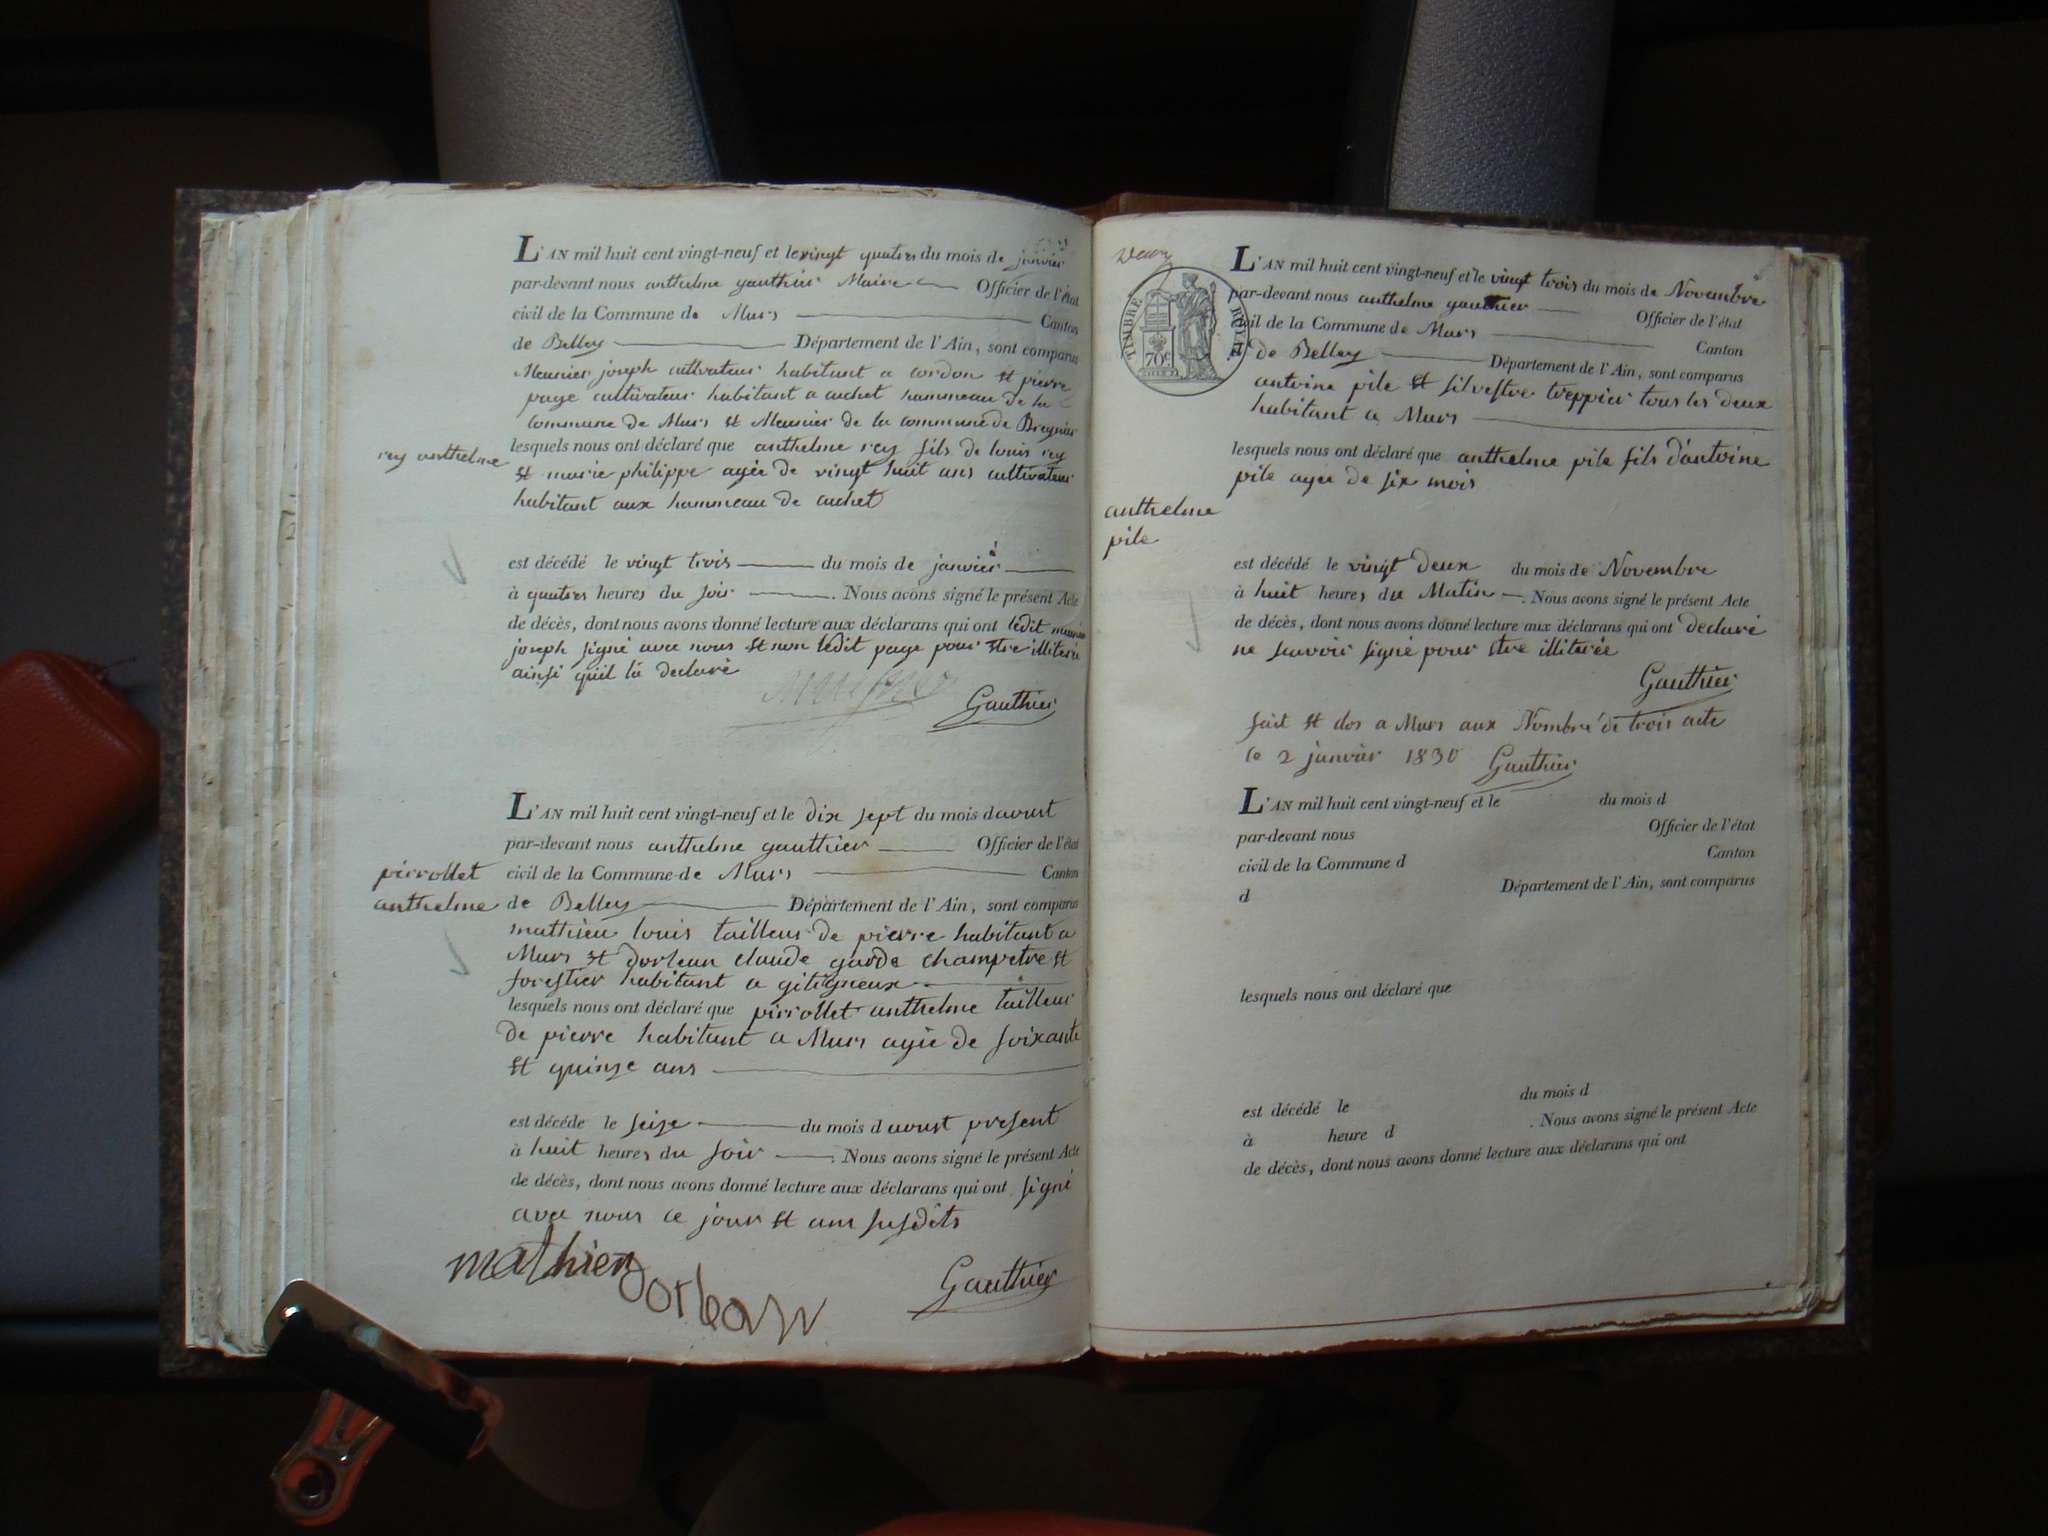 L'AN mil huit cent vingt-neuf et le vingt quatres du mois de janvier
par-devant nous anthelme gauthier Maire Officier de l'état
civil de la Commune de Murs Canton
de Belley Département de l'Ain, sont comparus
Meunier joseph cultivateur habitant a cordon et pierre
page cultivateur habitant a cuchet hammeau de la
commune de Murs et Meunier de la commune de Bregnier
rey anthelme
lesquels nous ont déclaré que anthelme rey fils de louis rey
et marie philippe agée de vingt huit ans cultivateur
habitant aux hammeau de cuchet
est décédé le vingt trois du mois de janvier
à quatres heures du soir . Nous avons signé le présent Acte
de décès, dont nous avons donné lecture aux déclarans qui ont ledit
joseph signé avec nous et non ledit page pour etre
ainsi quil la declaré
Gauthier
L'AN mil huit cent vingt-neuf et le dix sept du mois d aoust
par-devant nous anthelme gauthier Officier de l'état
pirrollet
anthelme
civil de la Commune de Murs Canton
de Belley Département de l'Ain, sont comparus
mathieu louis tailleur de pierre habitant a
Murs et dorlean claude garde champetre et
forestier habitant a
lesquels nous ont déclaré que pirrollet anthelme tailleur
de pierre habitant a Murs agée de soixante
et quinze ans
est décédé le seize du mois d aoust present
à huit heures du soir . Nous avons signé le présent Acte
de décès, dont nous avons donné lecture aux déclarans qui ont signé
avec nous ce jour et ans susdits
mathieu
Dorlean
Gauthier
TIMBRE ROYAL
70c
L'AN mil huit cent vingt-neuf et le vingt trois du mois de Novembre
par-devant nous anthelme gauthier Officier de l'état
civil de la Commune de Murs Canton
de Belley Département de l'Ain, sont comparus
antoine pile et silvestre treppier tous les deux
habitant a Murs
lesquels nous ont déclaré que anthelme pile fils d'antoine
pile agée de six mois
anthelme
pile
est décédé le vingt deux du mois de Novembre
à huit heures du Matin . Nous avons signé le présent Acte
de décès, dont nous avons donné lecture aux déclarans qui ont declaré
ne savoir signé pour etre illiterée
Gauthier
fait et clos a Murs aux Nombre de trois acte
le 2 janvier 1830 Gauthier
L'AN mil huit cent vingt-neuf et le du mois d
par-devant nous Officier de l'état
civil de la Commune d Canton
d Département de l'Ain, sont comparus
lesquels nous ont déclaré que
est décédé le du mois d
à heure d . Nous avons signé le présent Acte
de décès, dont nous avons donné lecture aux déclarans qui ont